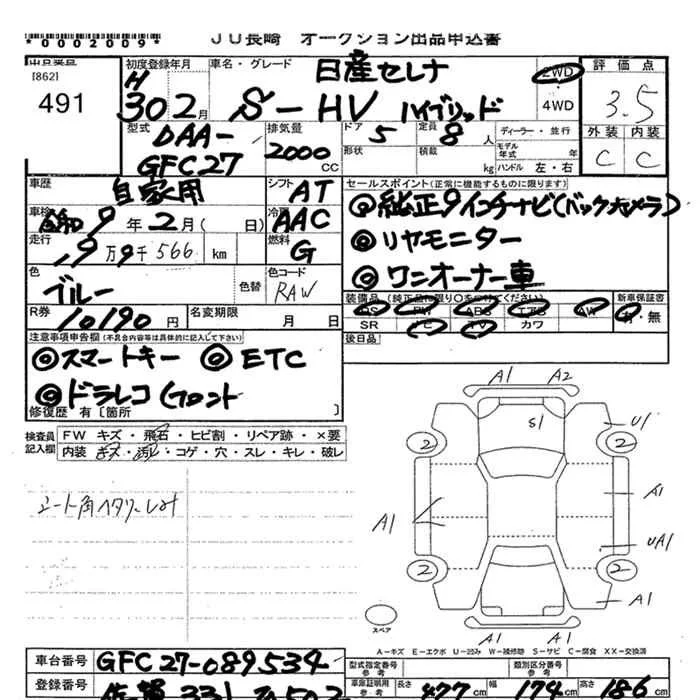 *0002009*
JU長崎 オークション出品申込書
出品番号
[862]
491
初度登録年月
H
30 2月
車名・グレード
日産セレナ
S-HV ハイブリッド
2WD
4WD
評価点
3.5
外装 内装
C C
型式
DAA-
GFC27
排気量
2000
CC
ドア
5
形状
定員
8人
積載
kg
ディーラー・並行
モデル
年式 年
ハンドル 左・右
車歴
自家用
シフト
AT
車検
令和9年2月( 日)
冷房
AAC
走行
9万9千566 km
燃料
G
色
ブルー
色替
色コード
RAW
R券
10190円
名変期限
月 日
セールスポイント(正常に機能するものに限ります)
◎純正9インチナビ(バックカメラ)
◎リヤモニター
◎ワンオーナー車
装備品(純正品に限り○をつけてください)
PS PW ABS エアB AW
SR ナビ TV カワ
新車保証書
有・無
後日品
注意事項申告欄(不具合内容等は具体的に記入して下さい)
◎スマートキー ◎ETC
◎ドラレコ(フロント
修復歴 有〔箇所 〕
検査員
記入欄
FW キズ・飛石・ヒビ割・リペア跡・×要
内装 キズ・汚レ・コゲ・穴・スレ・キレ・破レ
A1 A2
S1
U1
2 2
A1
A1
UA1
2 2
A1
A1 A1
スペア
A-キズ E-エクボ U-凹み W-補修跡 S-サビ C-腐食 XX-交換済
車台番号
GFC27-089534
登録番号
佐賀 331
型式指定番号
参考
類別区分番号
参考
車庫証明用
参考
長さ 477cm 幅 174cm 高さ 186cm